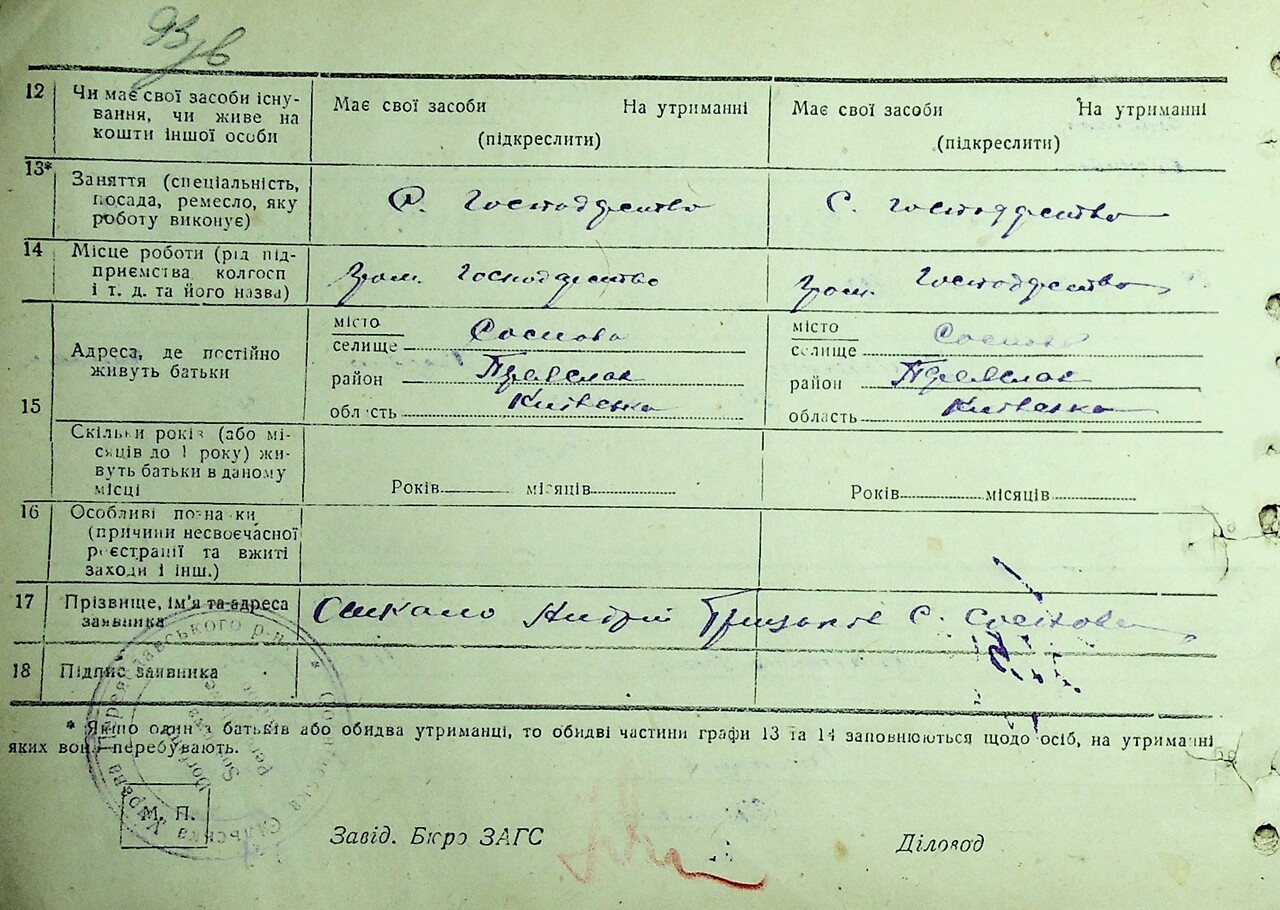 12 Чи має свої засоби існу-
вання, чи живе на
кошти іншої особи
Має свої засоби На утриманні
(підкреслити)
Має свої засоби На утриманні
(підкреслити)
13* Заняття (спеціальність,
посада, ремесло, яку
роботу виконує)
С. господрство
С. господрство
14 Місце роботи (рід під-
приємства колгосп
і т. д. та його назва)
Гром. господрство
Гром. господрство
15 Адреса, де постійно
живуть батьки
місто
селище Соснова
район Переяслав
область Київська
місто
селище Соснова
район Переяслав
область Київська
Скільки років (або мі-
сяців до 1 року) жи-
вуть батьки в даному
місці
Років місяців
Років місяців
16 Особливі познаки
(причини несвоєчасної
реєстрації та вжиті
заходи і інш.)
17 Прізвище, ім'я та адреса
заявника
Андрій С. Соснова
18 Підпис заявника
* Якщо один з батьків або обидва утриманці, то обидві частини графи 13 та 14 заповнюються щодо осіб, на утриманні
яких вони перебувають.
М. П.
Завід. Бюро ЗАГС
Діловод